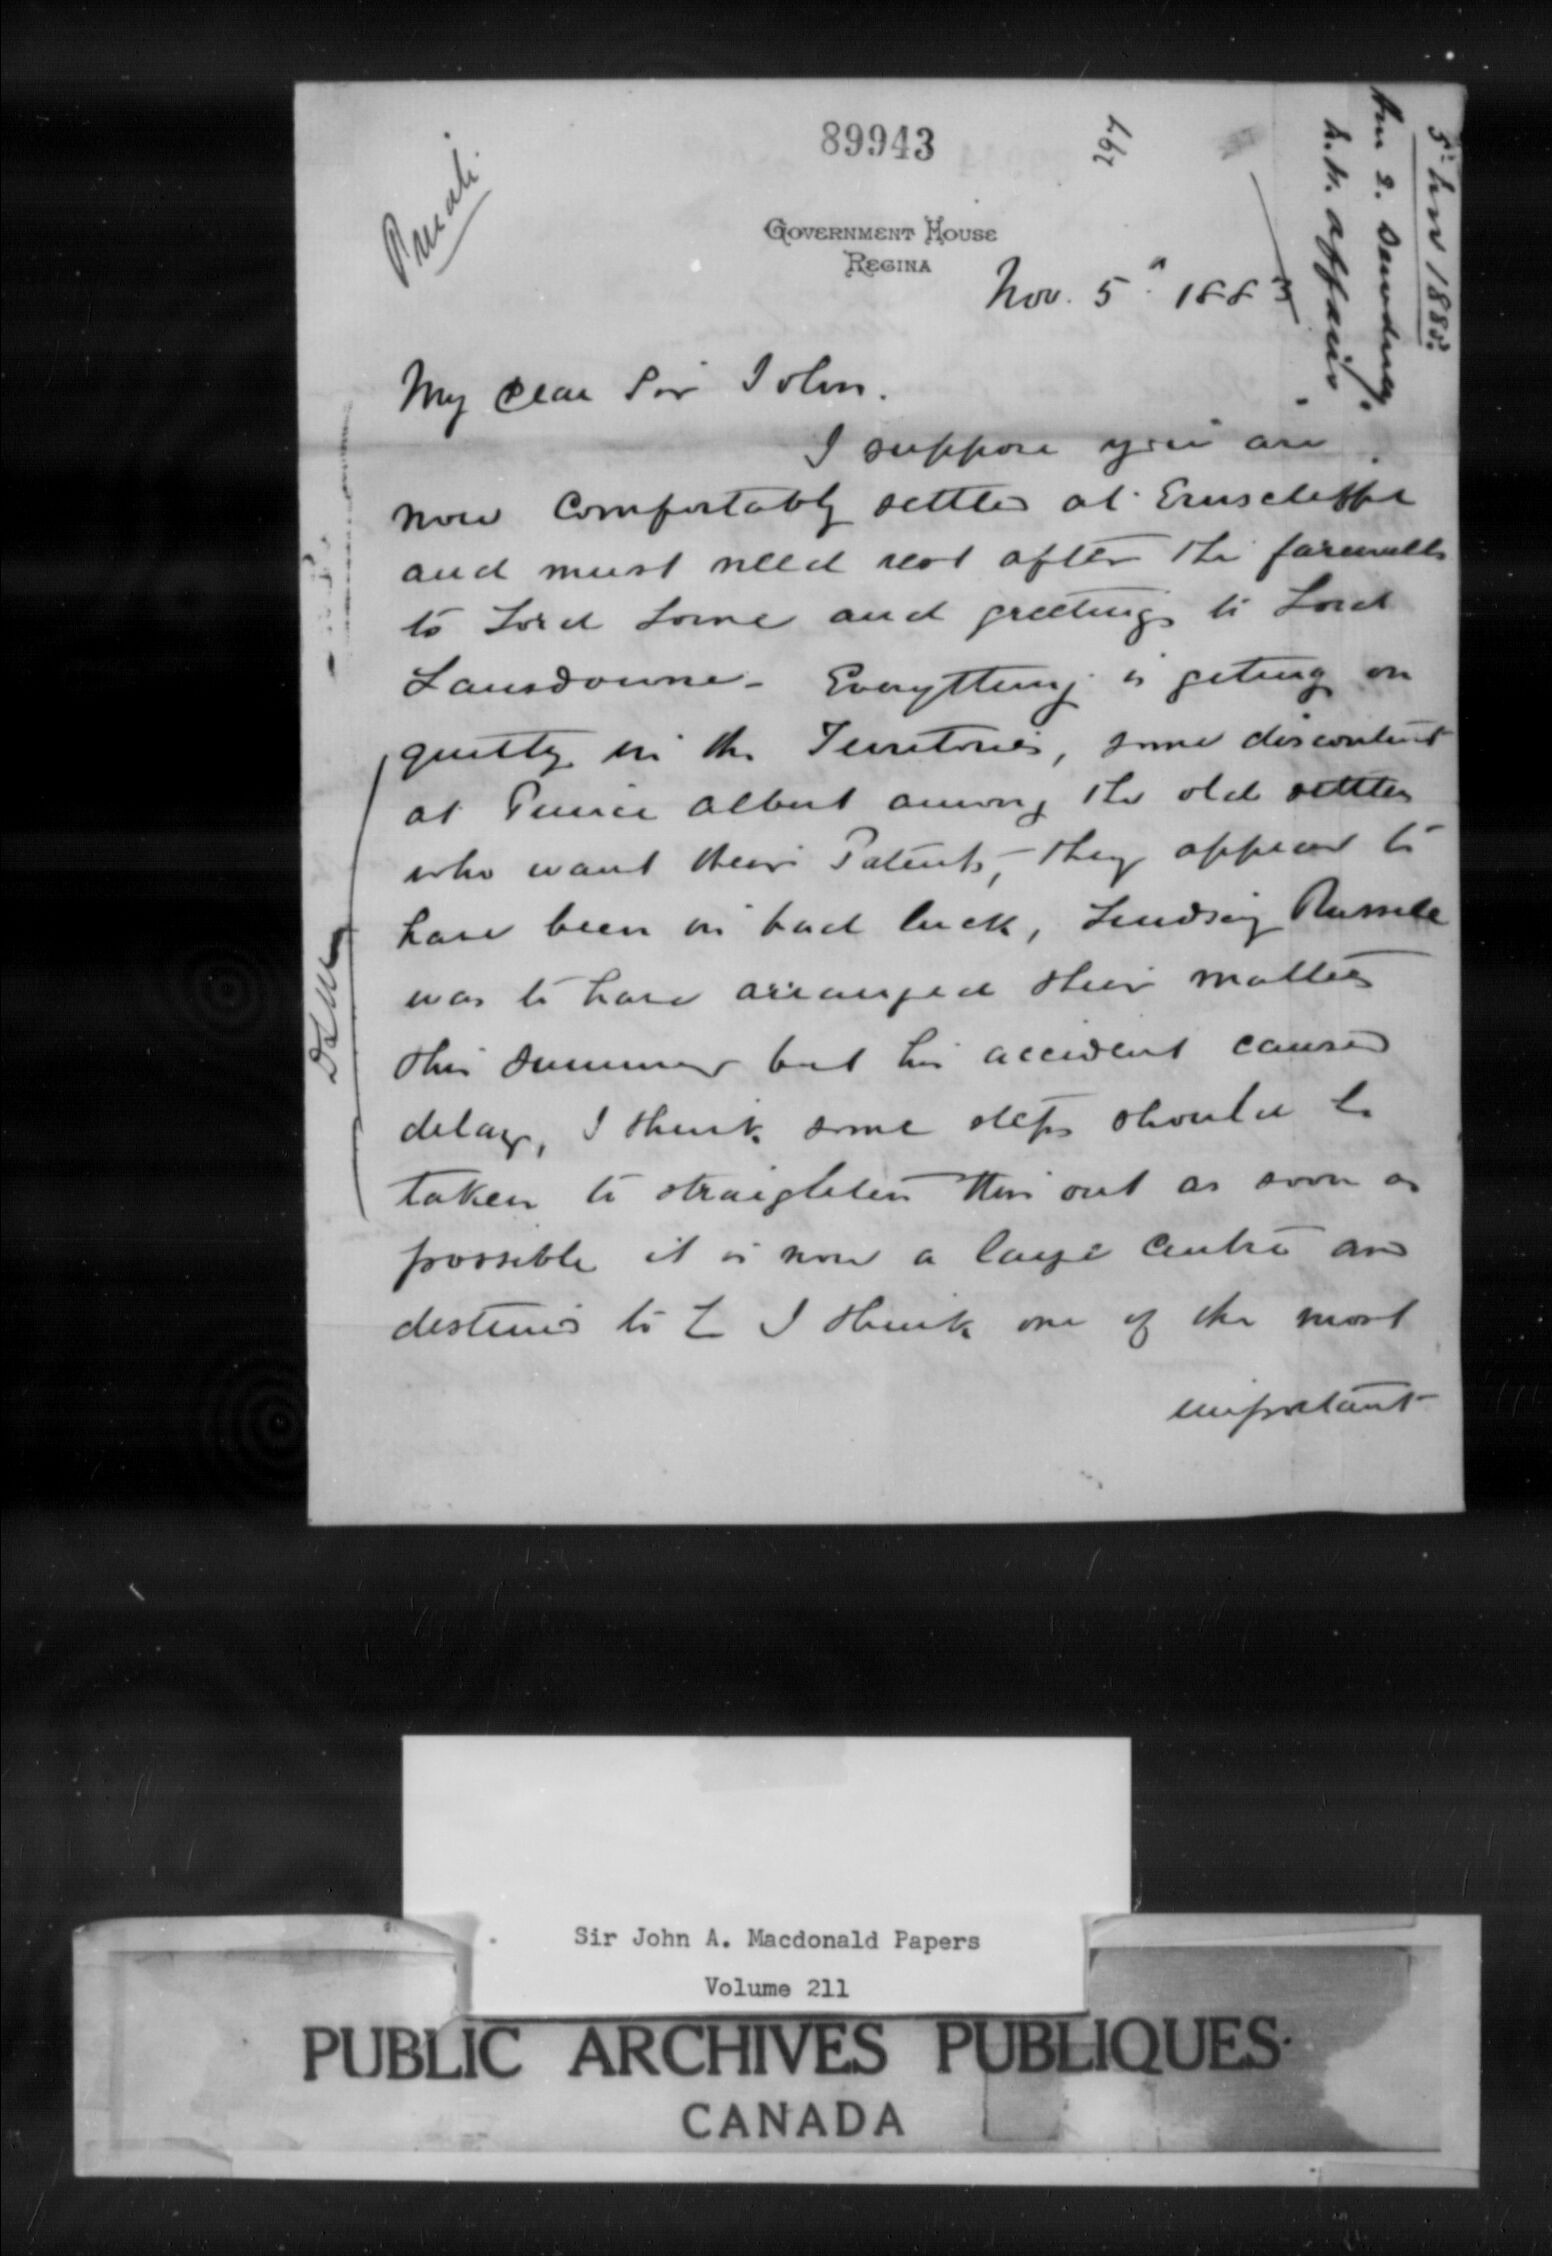 89943
Private
GOVERNMENT HOUSE
REGINA
Nov. 5th 1883
5th Nov 1883.
Hon E. Dewdney.
N.W. affairs.
My dear Sir John.
I suppose you are
now Comfortably settled at Earnscliffe
and must need rest after the farewells
to Lord Lorne and greetings to Lord
Lansdowne - Everything is geting on
quietly in the Territories, some discontent
at Prince Albert among the old settlers
who want their Patents, - they appear to
have been in bad luck, Lindsay Russell
was to have arranged their matters
this summer but his accident caused
delay, I think some steps should be
taken to straighten this out as soon as
possible it is now a large Centre and
destined to be I think one of the most
important
Sir John A. Macdonald Papers
Volume 211
PUBLIC ARCHIVES PUBLIQUES
CANADA